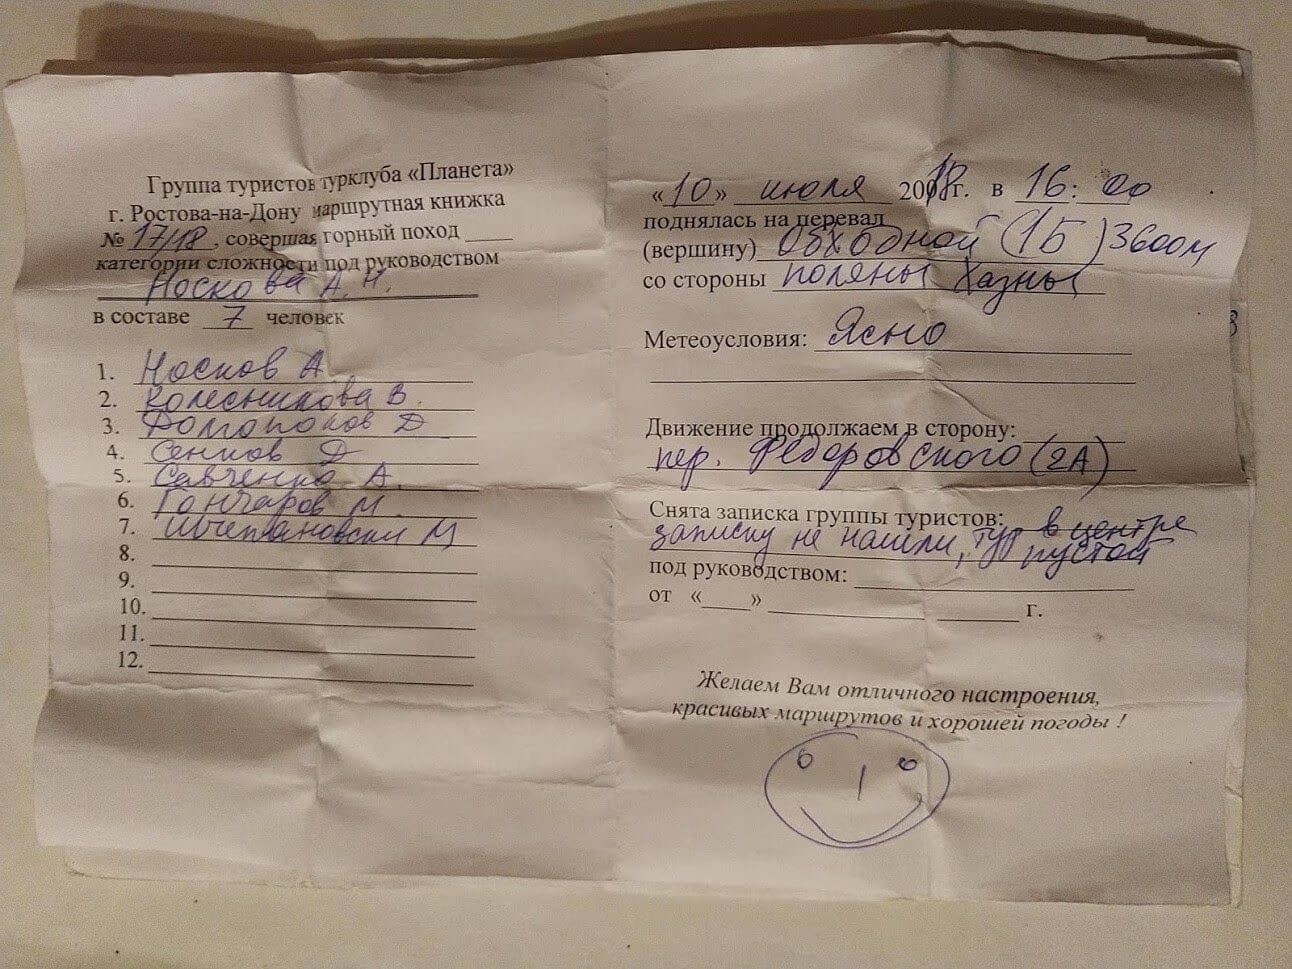 Группа туристов турклуба «Планета»
г. Ростова-на-Дону маршрутная книжка
№ 17/18, совершая горный поход ____
категории сложности под руководством
Носкова А. Н.
в составе 7 человек
1. Носков А
2. Колесникова В.
3. Долгополов Д
4. Сенков Д
5. Савченко А.
6. Гончаров М.
7. М
8.
9.
10.
11.
12.
«10» июля 2018г. в 16:00
поднялась на перевал
(вершину) Обходной (1Б) 3600м
со стороны поляны Хазны
Метеоусловия: Ясно
Движение продолжаем в сторону:
пер. Федоровского (2А)
Снята записка группы туристов:
записку не нашли, тур в центре
пустой
под руководством:
от «____» ____ г.
Желаем Вам отличного настроения,
красивых маршрутов и хорошей погоды !